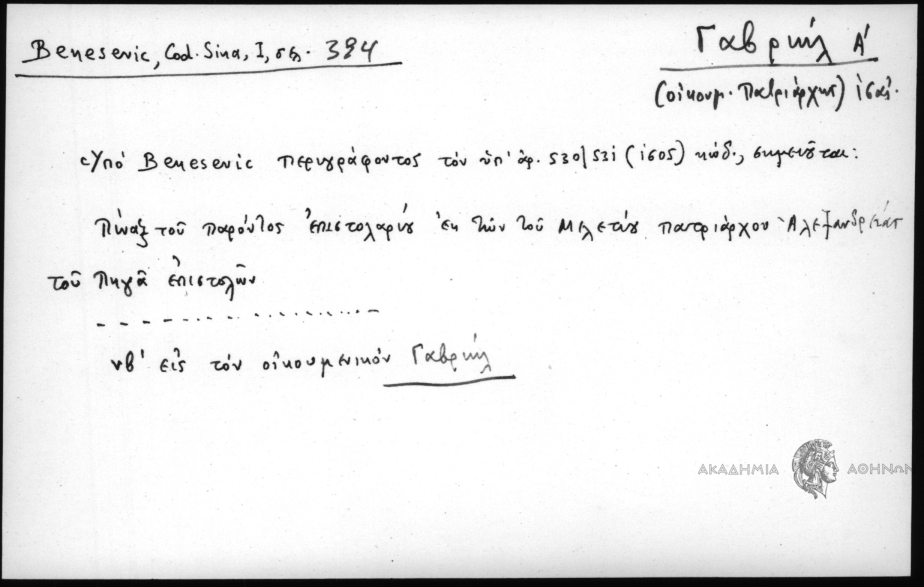 Benesevic, Cod. Sina, I, σελ. 384
Γαβριήλ Α΄
(οἰκουμ. Πατριάρχης)
Ὑπό Benesevic περιγράφοντος τόν ὑπ' ἀρ. 530/531 (1605) κώδ., σημειοῦται:
Πίναξ τοῦ παρόντος ἐπιστολαρίου ἐκ τῶν τοῦ Μελετίου πατριάρχου Ἀλεξανδρείας
τοῦ Πηγᾶ ἐπιστολῶν
νβ' εἰς τόν οἰκουμενικόν Γαβριήλ
ΑΚΑΔΗΜΙΑ ΑΘΗΝΩΝ